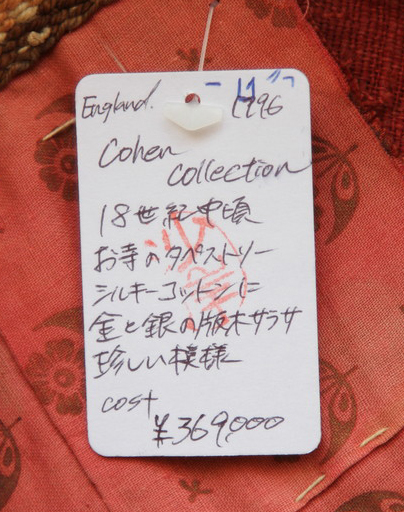 England. 1996
Cohen
Collection
18世紀中頃
お寺のタペストリー
シルキーコットンに
金と銀の版木サラサ
珍しい模様
cost
¥369,000